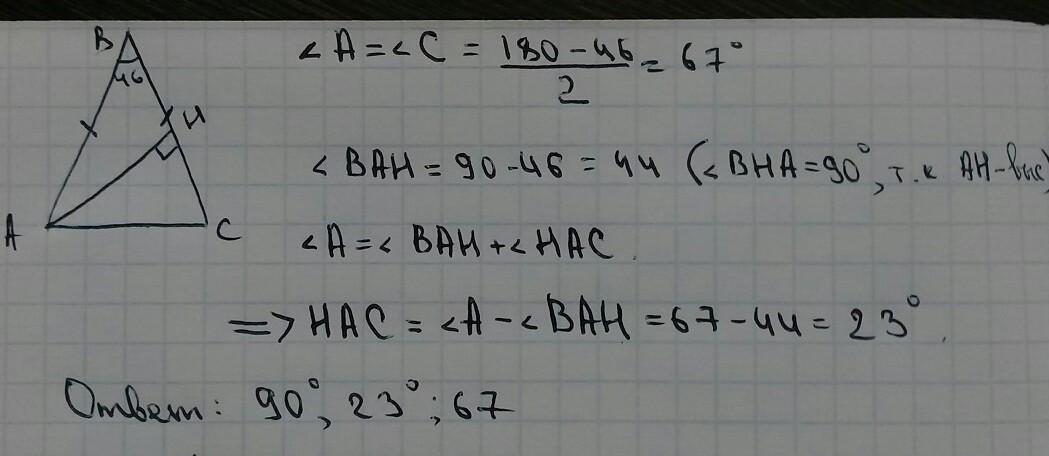 B
46
H
A
C
∠A = ∠C = (180 - 46)/2 = 67°
∠BAH = 90 - 46 = 44 (∠BHA = 90°, т.к AH - выс)
∠A = ∠BAH + ∠HAC
=> HAC = ∠A - ∠BAH = 67 - 44 = 23°.
Ответ: 90°, 23°; 67